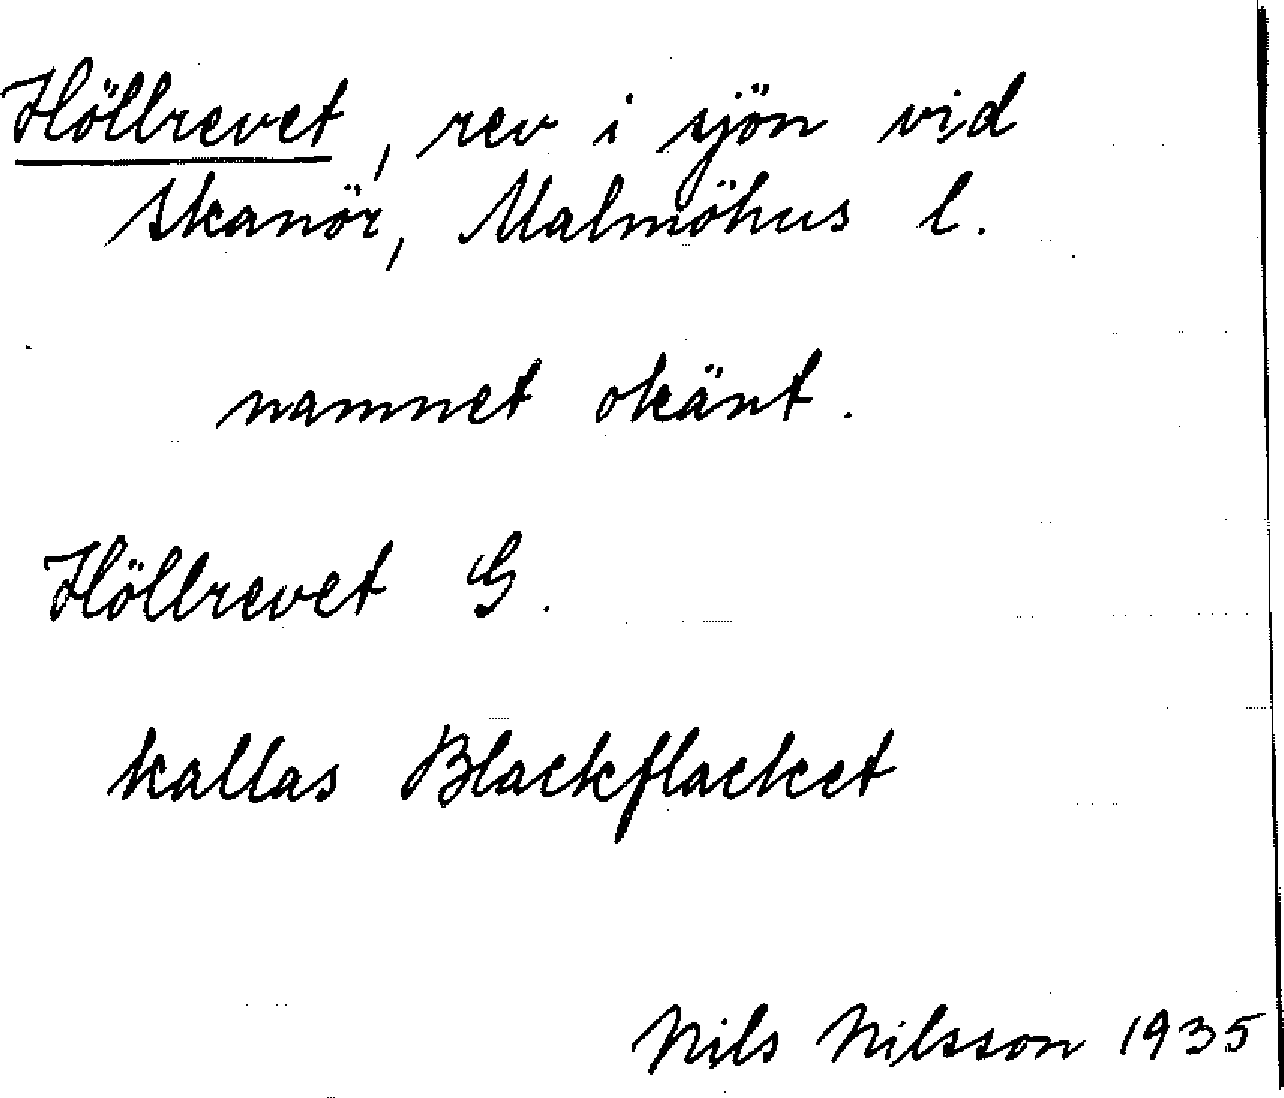 Höllrevet, rev i sjön vid
Skanör, Malmöhus l.
namnet okänt.
Höllrevet G.
kallas Blackflacket
Nils Nilsson 1935